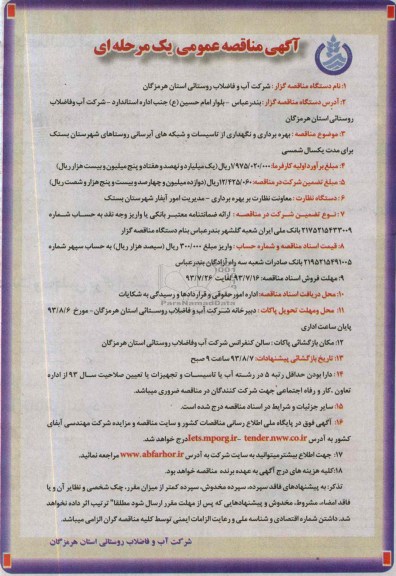 آگهی مناقصه عمومی یک مرحله ای
۱: نام دستگاه مناقصه گزار : شرکت آب و فاضلاب روستائی استان هرمزگان
۲: آدرس دستگاه مناقصه گزار : بندرعباس -بلوار امام حسین (ع) جنب اداره استاندارد -شرکت آب وفاضلاب
روستائی استان هرمزگان
۳: موضوع مناقصه : بهره برداری و نگهداری از تاسیسات و شبکه های آبرسانی روستاهای شهرستان بستک
برای مدت یکسال شمسی
۴: مبلغ برآورد اولیه کارفرما: ۱/۹۷۵/۰۲۰/۰۰۰ریال (یک میلیارد و نهصد و هفتاد و پنج میلیون و بیست هزار ریال)
۵: مبلغ تضمین شرکت در مناقصه: ۱۲/۴۲۵/۰۶۰ریال (دوازده میلیون و چهارصد و بیست و پنج هزار و شصت ریال)
۶ : دستگاه نظارت : معاونت نظارت بر بهره برداری - مدیریت امور آبفار شهرستان بستک
۷ : نوع تضمین شرکت در مناقصه : ارائه ضمانتنامه معتبر بانکی یا واریز وجه نقد به حساب شماره
۲۱۷۵۲۱۵۴۳۳۰۰۹ بانک ملی ایران شعبه گلشهر بندرعباس بنام دستگاه مناقصه گزار
۸: قیمت اسناد مناقصه و شماره حساب : واریز مبلغ ۳۰۰/۰۰۰ ریال (سیصد هزار ریال) به حساب سپهر شماره
۲۱۹۵۲۱۵۴۹۱۰۰۵ بانک صادرات شعبه سه راه آزادگان بندرعباس
۹: مهلت فروش اسناد مناقصه: ۹۳/۷/۱۶ لغایت ۹۳/۷/۲۶
۱۰: محل دریافت اسناد مناقصه: اداره امور حقوقی و قراردادها و رسیدگی به شکایات
۱۱: محل ومهلت تحویل پاکات : دبیرخانه شرکت آب و فاضلاب روستائی استان هرمزگان- مورخ ۹۳/۸/۶
پایان ساعت اداری
۱۲: مکان بازگشائی پاکات : سالن کنفرانس شرکت آب وفاضلاب روستائی استان هرمزگان
۱۳: تاریخ بازگشائی پیشنهادات: ۹۳/۸/۷ ساعت ۹ صبح
۱۴: دارا بودن حداقل رتبه ۵ در رشته آب یا تاسیسات و تجهیزات یا تعیین صلاحیت سال ۹۳ از اداره
تعاون ،کار و رفاه اجتماعی جهت شرکت کنندگان در مناقصه ضروری میباشد.
۱۵: سایر جزئیات و شرایط در اسناد مناقصه درج شده است.
۱۶: آگهی فوق در پایگاه ملی اطلاع رسانی مناقصات کشور و سایت مناقصه و مزایده شرکت مهندسی آبفای
کشور به آدرس iets.mporg.ir- tender.nww.co.ir درج خواهد شد.
۱۷: جهت اطلاع بیشتر میتوانید به سایت شرکت به آدرس www.abfarhor.ir مراجعه نمائید.
۱۸:کلیه هزینه های درج آگهی به عهده برنده مناقصه خواهد بود.
تذکر: به پیشنهادهای فاقد سپرده، سپرده مخدوش، سپرده کمتر از میزان مقرر، چک شخصی و نظایر آن و یا
فاقد امضاء، مشروط، مخدوش و پیشنهادهایی که پس از مهلت مقرر ارسال شود مطلقاً" ترتیب اثر داده نخواهد
شد. داشتن شماره اقتصادی و شناسه ملی و رعایت الزامات ایمنی توسط کلیه مناقصه گران الزامی میباشد.
شرکت آب و فاضلاب روستائی استان هرمزگان